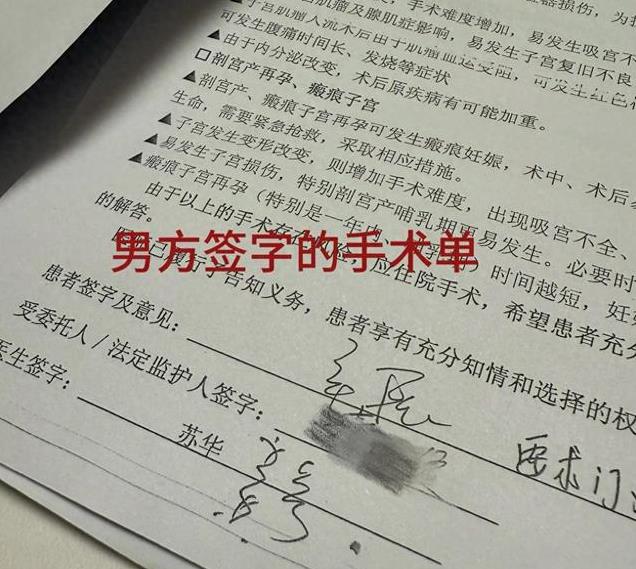 子宫肌瘤人流术后由于肌瘤血运受阻，可发生红色
可发生腹痛时间长、发烧等症状
▲由于内分泌改变，术后原疾病有可能加重。
□剖宫产再孕、瘢痕子宫
▲剖宫产、瘢痕子宫再孕可发生瘢痕妊娠，术中、术后
生命，需要紧急抢救，采取相应措施。
▲子宫发生变形改变，则增加手术难度，出现吸宫不全、
▲易发生子宫损伤，特别剖宫产哺乳期更易发生。必要时
▲瘢痕子宫再孕（特别是一年内、 时间越短，妊
由于以上的手术 应住院手术，希望患者充
的解答。
告知义务，患者享有充分知情和选择的权
男方签字的手术单
患者签字及意见：
要求门
受委托人/法定监护人签字：
医生签字：
苏华